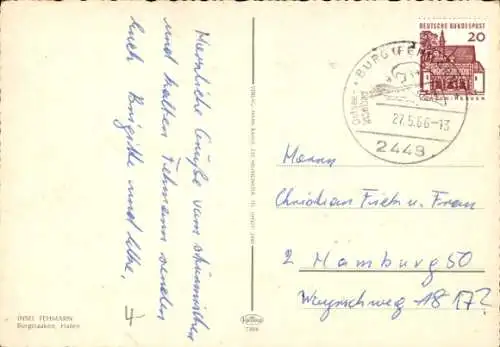 Herzliche Grüße vom stürmischen
und kalten Fehmarn senden
Euch Brigitte und
4-
INSEL FEHMARN
Burgstaaken, Hafen
DEUTSCHE BUNDESPOST
20
BURG (FEHM
Ostsee-
27.5.66-13
2449
Herrn
Christian u. Frau
2 Hamburg 50
18 17?